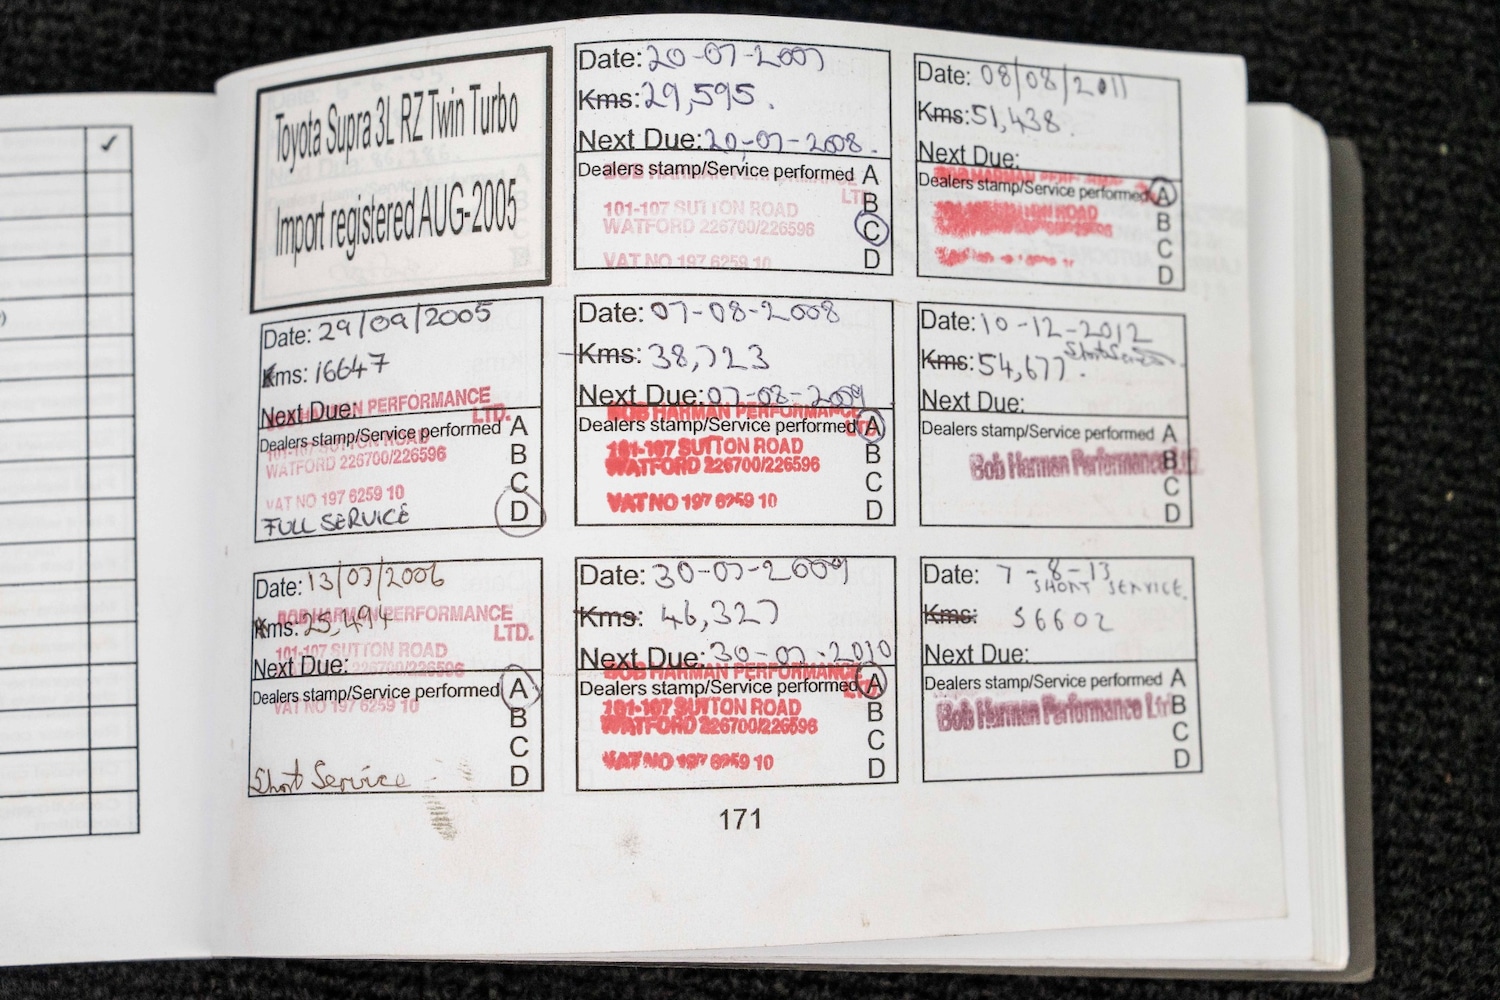 ✓
)
Toyota Supra 3L RZ Twin Turbo
Import registered AUG-2005
Date: 29/09/2005
Kms: 16647
Next Due:
BOB HARMAN PERFORMANCE
LTD.
Dealers stamp/Service performed A
101-107 SUTTON ROAD
B
WATFORD 226700/226596
C
VAT NO 197 6259 10
D
FULL SERVICE
Date: 13/07/2006
Kms: 25,494
BOB HARMAN PERFORMANCE
LTD.
101-107 SUTTON ROAD
Next Due:
226700/226596
Dealers stamp/Service performed A
VAT NO 197 6259 10
B
C
D
Short Service
Date: 20-07-2007
Kms: 29,595.
Next Due: 20-07-2008.
Dealers stamp/Service performed A
BOB HARMAN PERFORMANCE
LTD.
B
101-107 SUTTON ROAD
WATFORD 226700/226596
C
VAT NO 197 6259 10
D
Date: 07-08-2008
Kms: 38,723
Next Due: 07-08-2009
BOB HARMAN PERFORMANCE
LTD.
Dealers stamp/Service performed A
101-107 SUTTON ROAD
B
WATFORD 226700/226596
C
VAT NO 197 6259 10
D
Date: 30-07-2009
Kms: 46,327
Next Due: 30-07-2010
BOB HARMAN PERFORMANCE
LTD.
Dealers stamp/Service performed A
101-107 SUTTON ROAD
B
WATFORD 226700/226596
C
VAT NO 197 6259 10
D
Date: 08/08/2011
Kms: 51,438.
Next Due:
BOB HARMAN PERFORMANCE
Dealers stamp/Service performed A
ROAD
B
C
D
Date: 10-12-2012
Short Service.
Kms: 54,677.
Next Due:
Dealers stamp/Service performed A
Bob Harman Performance Ltd.
B
C
D
Date: 7-8-13
SHORT SERVICE.
Kms: 56602
Next Due:
Dealers stamp/Service performed A
Bob Harman Performance Ltd
B
C
D
171